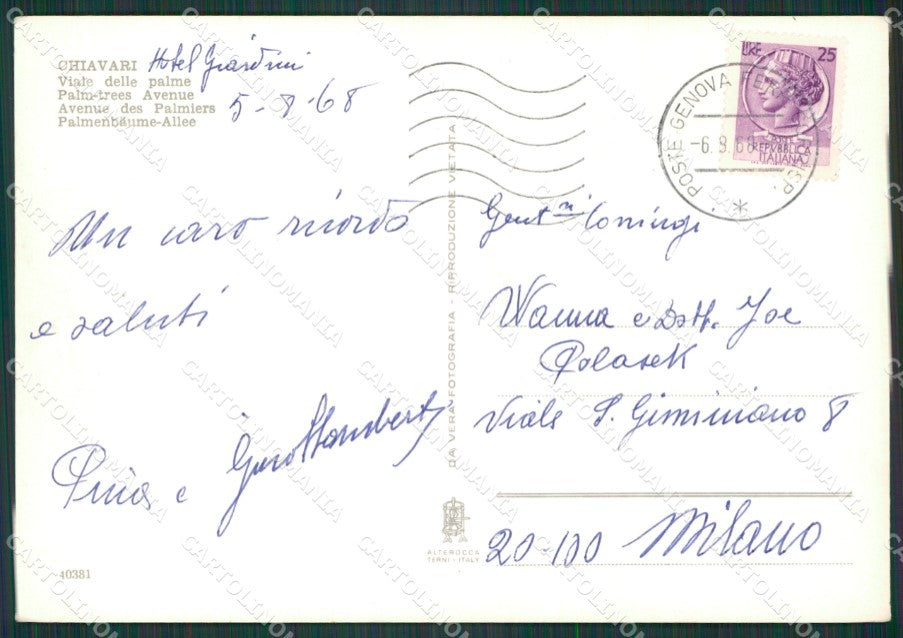 CHIAVARI Hotel Giardini
Viale delle palme
Palm-trees Avenue
Avenue des Palmiers
Palmenbäume-Allee
5-8-68
Un caro ricordo
e saluti
Pina e Gino
40381
DA VERA FOTOGRAFIA - RIPRODUZIONE VIETATA
ALTEROCCA
TERNI-ITALY
LIRE 25
POSTE REPVBBLICA
ITALIANA
POSTE GENOVA
-6.8.68
Gent.mi Coniugi
Wanna e Dott. Joe
Polasek
Viale S. Giminiano 8
20-100 Milano
CARTOLINOMANIA